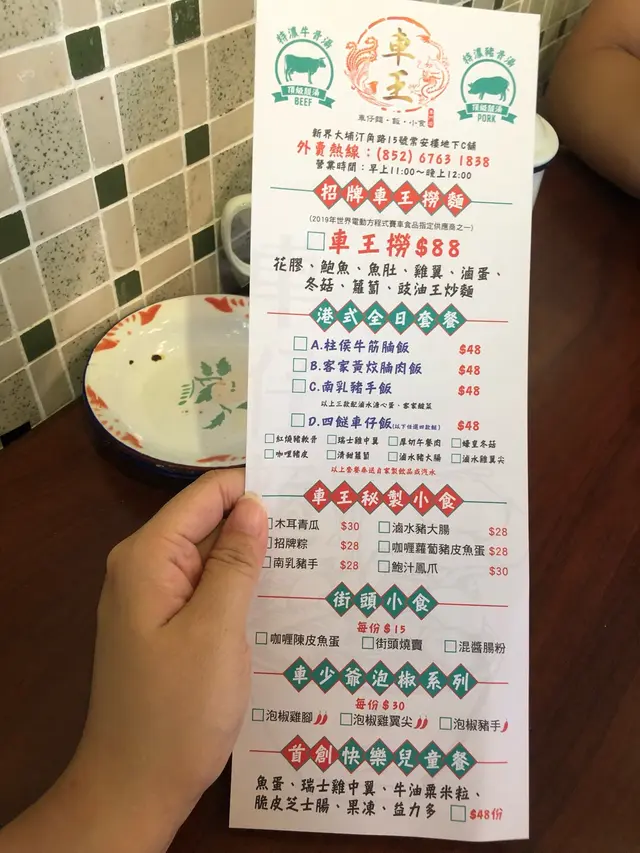 特濃牛骨湯
頂級麵湯
BEEF
車王
車仔麵·飯·小食
特濃豬骨湯
頂級麵湯
PORK
新界大埔汀角路15號常安樓地下C舖
外賣熱線：(852) 6763 1838
營業時間：早上11:00～晚上12:00
招牌車王撈麵
(2019年世界電動方程式賽車食品指定供應商之一)
車王撈$88
花膠、鮑魚、魚肚、雞翼、滷蛋、
冬菇、蘿蔔、豉油王炒麵
港式全日套餐
A.柱侯牛筋腩飯 $48
B.客家黃炆腩肉飯 $48
C.南乳豬手飯 $48
以上三款配滷水溏心蛋、客家鹹菜
D.四餸車仔飯(以下任選四款餸) $48
紅燒豬軟骨 瑞士雞中翼 厚切午餐肉 蠔皇冬菇
咖哩豬皮 清甜蘿蔔 滷水豬大腸 滷水雞翼尖
以上套餐奉送自家製飲品或汽水
車王秘製小食
木耳青瓜 $30 滷水豬大腸 $28
招牌粽 $28 咖喱蘿蔔豬皮魚蛋 $28
南乳豬手 $28 鮑汁鳳爪 $30
街頭小食
每份$15
咖喱陳皮魚蛋 街頭燒賣 混醬腸粉
車少爺泡椒系列
每份$30
泡椒雞腳 泡椒雞翼尖 泡椒豬手
首創快樂兒童餐
魚蛋、瑞士雞中翼、牛油粟米粒、
脆皮芝士腸、果凍、益力多 $48份